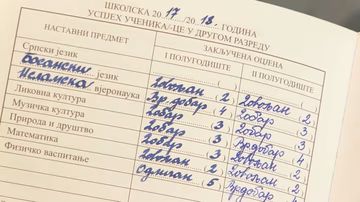 ШКОЛСКА 2017/2018. ГОДИНА
УСПЈЕХ УЧЕНИКА/-ЦЕ У ДРУГОМ РАЗРЕДУ
НАСТАВНИ ПРЕДМЕТ ЗАКЉУЧЕНА ОЦЈЕНА
I ПОЛУГОДИШТЕ II ПОЛУГОДИШТЕ
Српски језик ( ) ( )
Босански језик довољан (2) довољан (2)
Исламска вјеронаука Вр.добар (4) добар (3)
Ликовна култура добар (3) добар (3)
Музичка култура добар (3) Врдобар (4)
Природа и друштво добар (3)
Математика довољан (2) довољан (2)
Физичко васпитање Одличан (5) Врдобар (4)